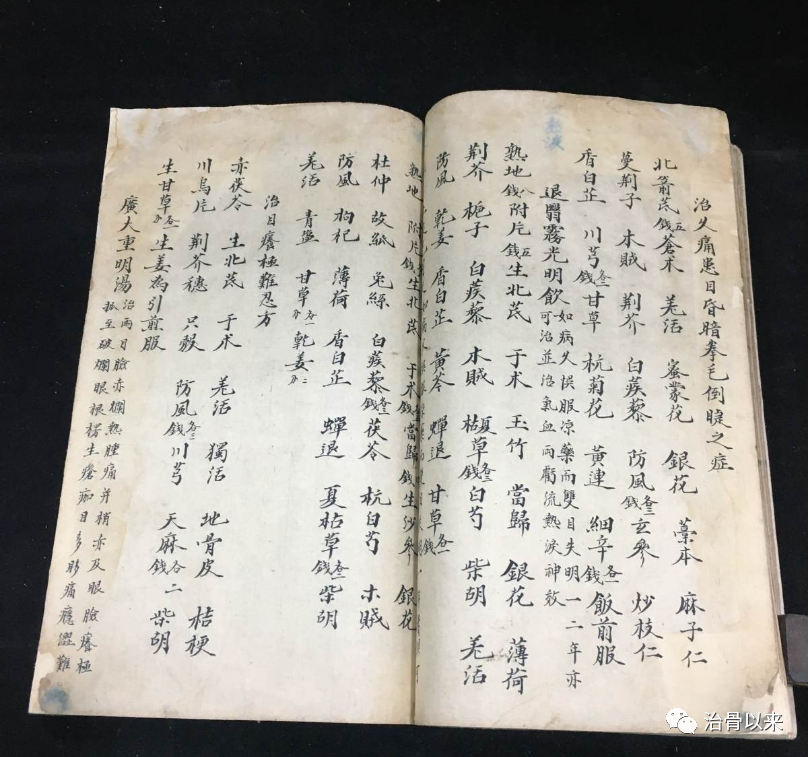 治久痛患目昏暗拳毛倒睫之症
北箭芪五钱蒼朮 羌活 蜜蒙花 銀花 藁本 麻子仁
蔓荆子 木賊 荆芥 白蒺藜 防風各二钱玄參 炒枝仁
香白芷 川芎各三钱甘草 杭菊花 黃連 細辛各一钱飯前服
退翳霧光明飲如病久悮服凉藥而雙目失明一二年亦
可治並治氣血両虧流熱淚神效
熟地八钱附片五钱生北芪 于朮 玉竹 當歸 銀花 薄荷
荆芥 梔子 白蒺藜 木賊 枯草各三钱白芍 柴胡 羌活
防風 乾姜 香白芷 黃芩 蟬退 甘草各一钱
熟地 附片钱生北芪 于朮钱當歸钱生沙參 銀花
杜仲 故紙 兎絲 白蒺藜各三钱茯苓 杭白芍 木賊
防風 枸杞 薄荷 香白芷 蟬退 夏枯草各二钱柴胡
羌活 青盐 甘草各一分乾姜二分
治目癢極難忍方
赤茯苓 生北芪 于朮 羌活 獨活 地骨皮 桔梗
川烏片 荆芥穗 只殼 防風各三钱川芎 天麻各二钱柴胡
生甘草各一分生姜為引煎服
廣大重明湯治両目臉赤爛熱腫痛并稍赤及眼臉癢極
抓至破爛眼楞生瘡痂目多眵痛癮澀難
熱淚
治骨以来